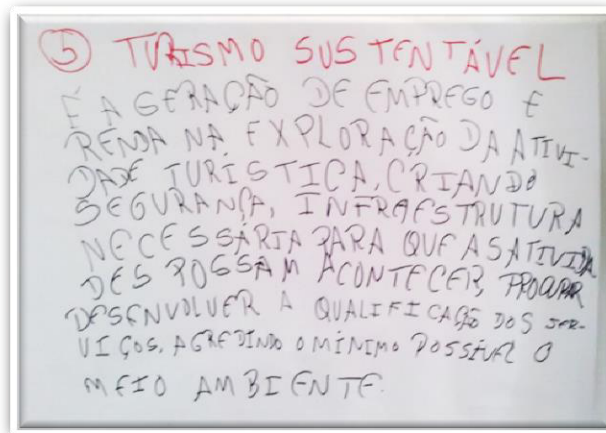 ⑤ TURISMO SUSTENTÁVEL
É A GERAÇÃO DE EMPREGO E
RENDA NA EXPLORAÇÃO DA ATIVI-
DADE TURÍSTICA, CRIANDO
SEGURANÇA, INFRAESTRUTURA
NECESSÁRIA PARA QUE AS ATIVIDA
DES POSSAM ACONTECER, PROCURAR
DESENVOLVER A QUALIFICAÇÃO DOS SER-
VIÇOS, AGREDINDO O MÍNIMO POSSÍVEL O
MEIO AMBIENTE.